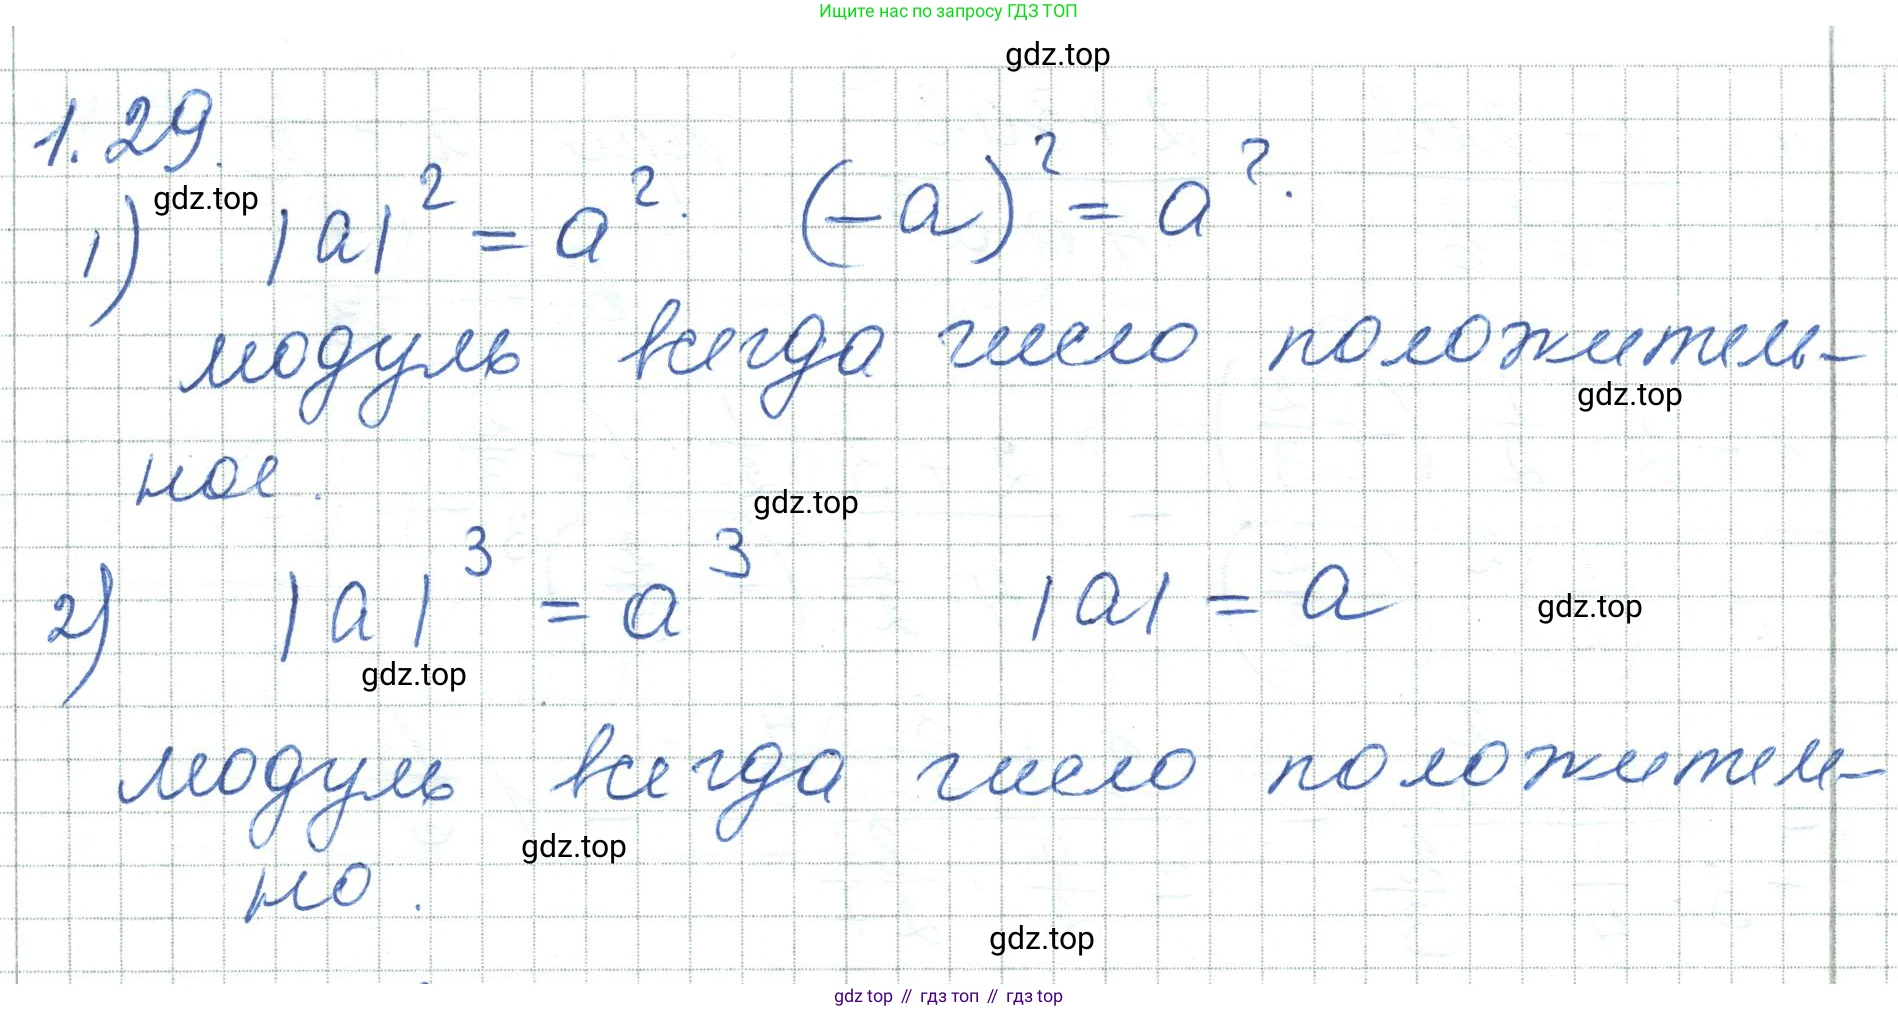 Ищите нас по запросу ГДЗ ТОП
gdz.top
1.29.
gdz.top
1) |a|² = a². (-a)² = a².
модуль всегда число положитель-
gdz.top
ное.
gdz.top
2) |a|³ = a³ |a| = a
gdz.top
gdz.top
модуль всегда число положитель-
gdz.top
но.
gdz.top
gdz top // гдз топ // гдз top